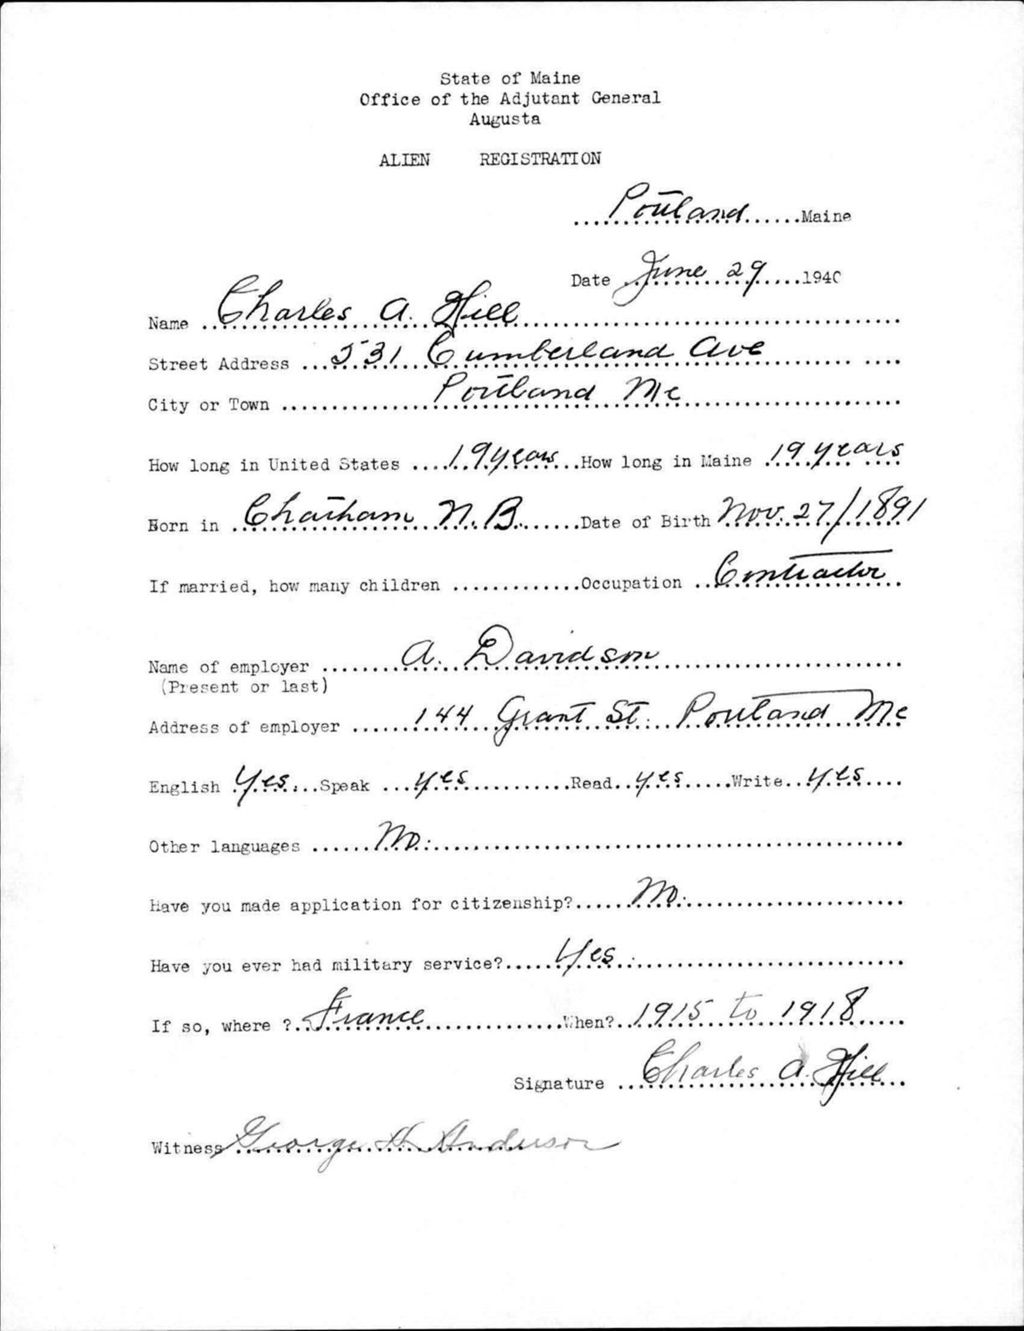 State of Maine
Office of the Adjutant General
Augusta
ALIEN REGISTRATION
Portland Maine
Date June 29 1940
Name Charles A. Hill
Street Address 531 Cumberland Ave
City or Town Portland Me
How long in United States 19 years How long in Maine 19 years
Born in Chatham N.B. Date of Birth Nov. 27/1891
If married, how many children Occupation Contractor
Name of employer A. Davidson
(Present or last)
Address of employer 144 Grant St. Portland Me
English Yes. Speak yes Read yes Write yes
Other languages No.
Have you made application for citizenship? No.
Have you ever had military service? Yes.
If so, where ? France When? 1915 to 1918
Signature Charles A. Hill
Witness George H Anderson